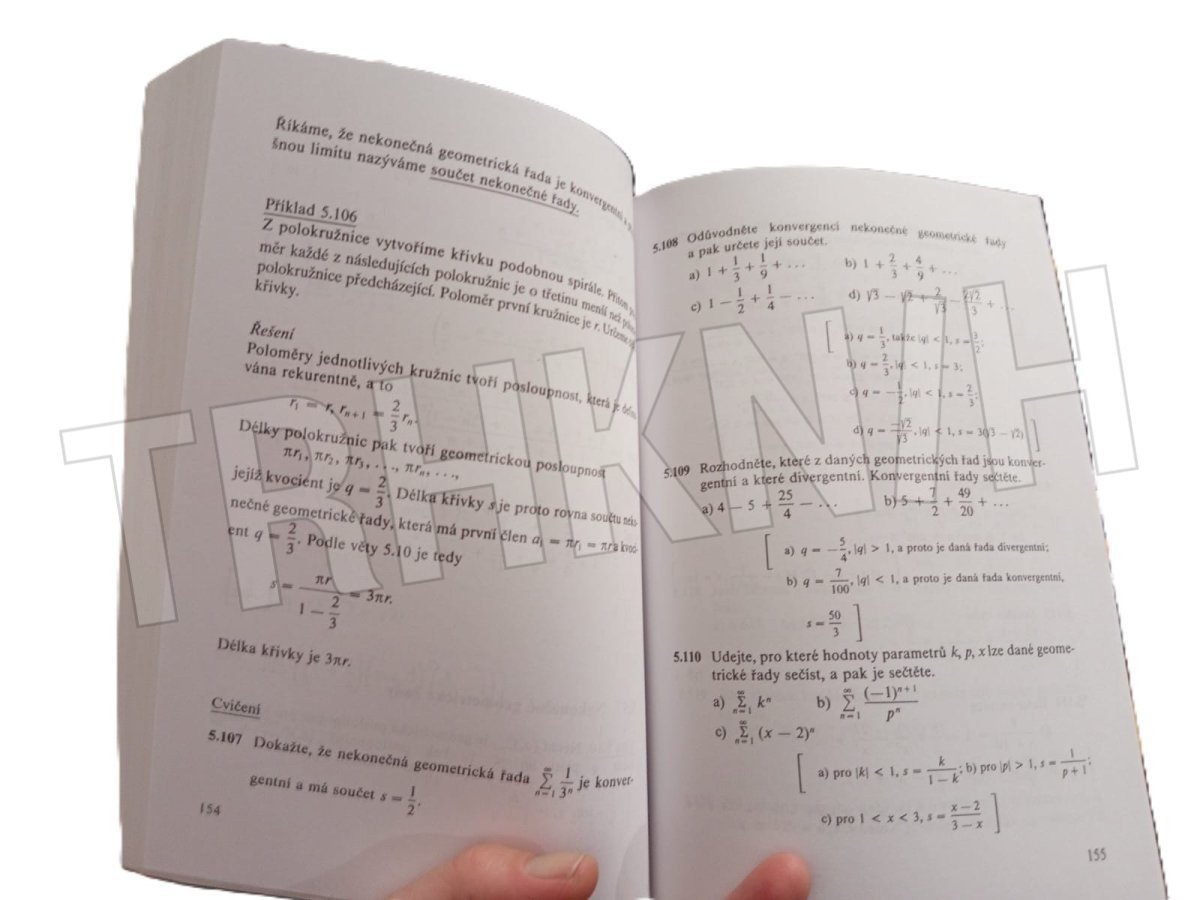 Říkáme, že nekonečná geometrická řada je konvergentní a
šnou limitu nazýváme součet nekonečné řady.
Příklad 5.106
Z polokružnice vytvoříme křivku podobnou spirále. Přitom
měr každé z následujících polokružnic je o třetinu menší než
polokružnice předcházející. Poloměr první kružnice je r. Určeme
křivky.
Řešení
Poloměry jednotlivých kružnic tvoří posloupnost, která je
vána rekurentně, a to
r₁ = r, rₙ₊₁ = 2/3 rₙ.
Délky polokružnic pak tvoří geometrickou posloupnost
πr₁, πr₂, πr₃, . . ., πrₙ, . . .,
jejíž kvocient je q = 2/3. Délka křivky s je proto rovna součtu neko-
nečné geometrické řady, která má první člen a₁ = πr₁ = πr a kvoci-
ent q = 2/3. Podle věty 5.10 je tedy
s = πr/(1 − 2/3) = 3πr.
Délka křivky je 3πr.
Cvičení
5.107 Dokažte, že nekonečná geometrická řada ∑ₙ₌₁^∞ 1/3ⁿ je konver-
gentní a má součet s = 1/2.
154
5.108 Odůvodněte konvergenci nekonečné geometrické řady
a pak určete její součet.
a) 1 + 1/3 + 1/9 + . . . b) 1 + 2/3 + 4/9 + . . .
c) 1 − 1/2 + 1/4 − . . . d) √3 − √2 + 2/√3 − 2√2/3 + . . .
[ a) q = 1/3, takže |q| < 1, s = 3/2;
b) q = 2/3, |q| < 1, s = 3;
c) q = −1/2, |q| < 1, s = 2/3;
d) q = −√2/√3, |q| < 1, s = 3(√3 − √2) ]
5.109 Rozhodněte, které z daných geometrických řad jsou konver-
gentní a které divergentní. Konvergentní řady sečtěte.
a) 4 − 5 + 25/4 − . . . b) 5 + 7/2 + 49/20 + . . .
[ a) q = −5/4, |q| > 1, a proto je daná řada divergentní;
b) q = 7/100, |q| < 1, a proto je daná řada konvergentní,
s = 50/3 ]
5.110 Udejte, pro které hodnoty parametrů k, p, x lze dané geome-
trické řady sečíst, a pak je sečtěte.
a) ∑ₙ₌₁^∞ kⁿ b) ∑ₙ₌₁^∞ (−1)ⁿ⁺¹/pⁿ
c) ∑ₙ₌₁^∞ (x − 2)ⁿ
[ a) pro |k| < 1, s = k/(1 − k); b) pro |p| > 1, s = 1/(p + 1);
c) pro 1 < x < 3, s = (x − 2)/(3 − x) ]
155
TRHKNIH